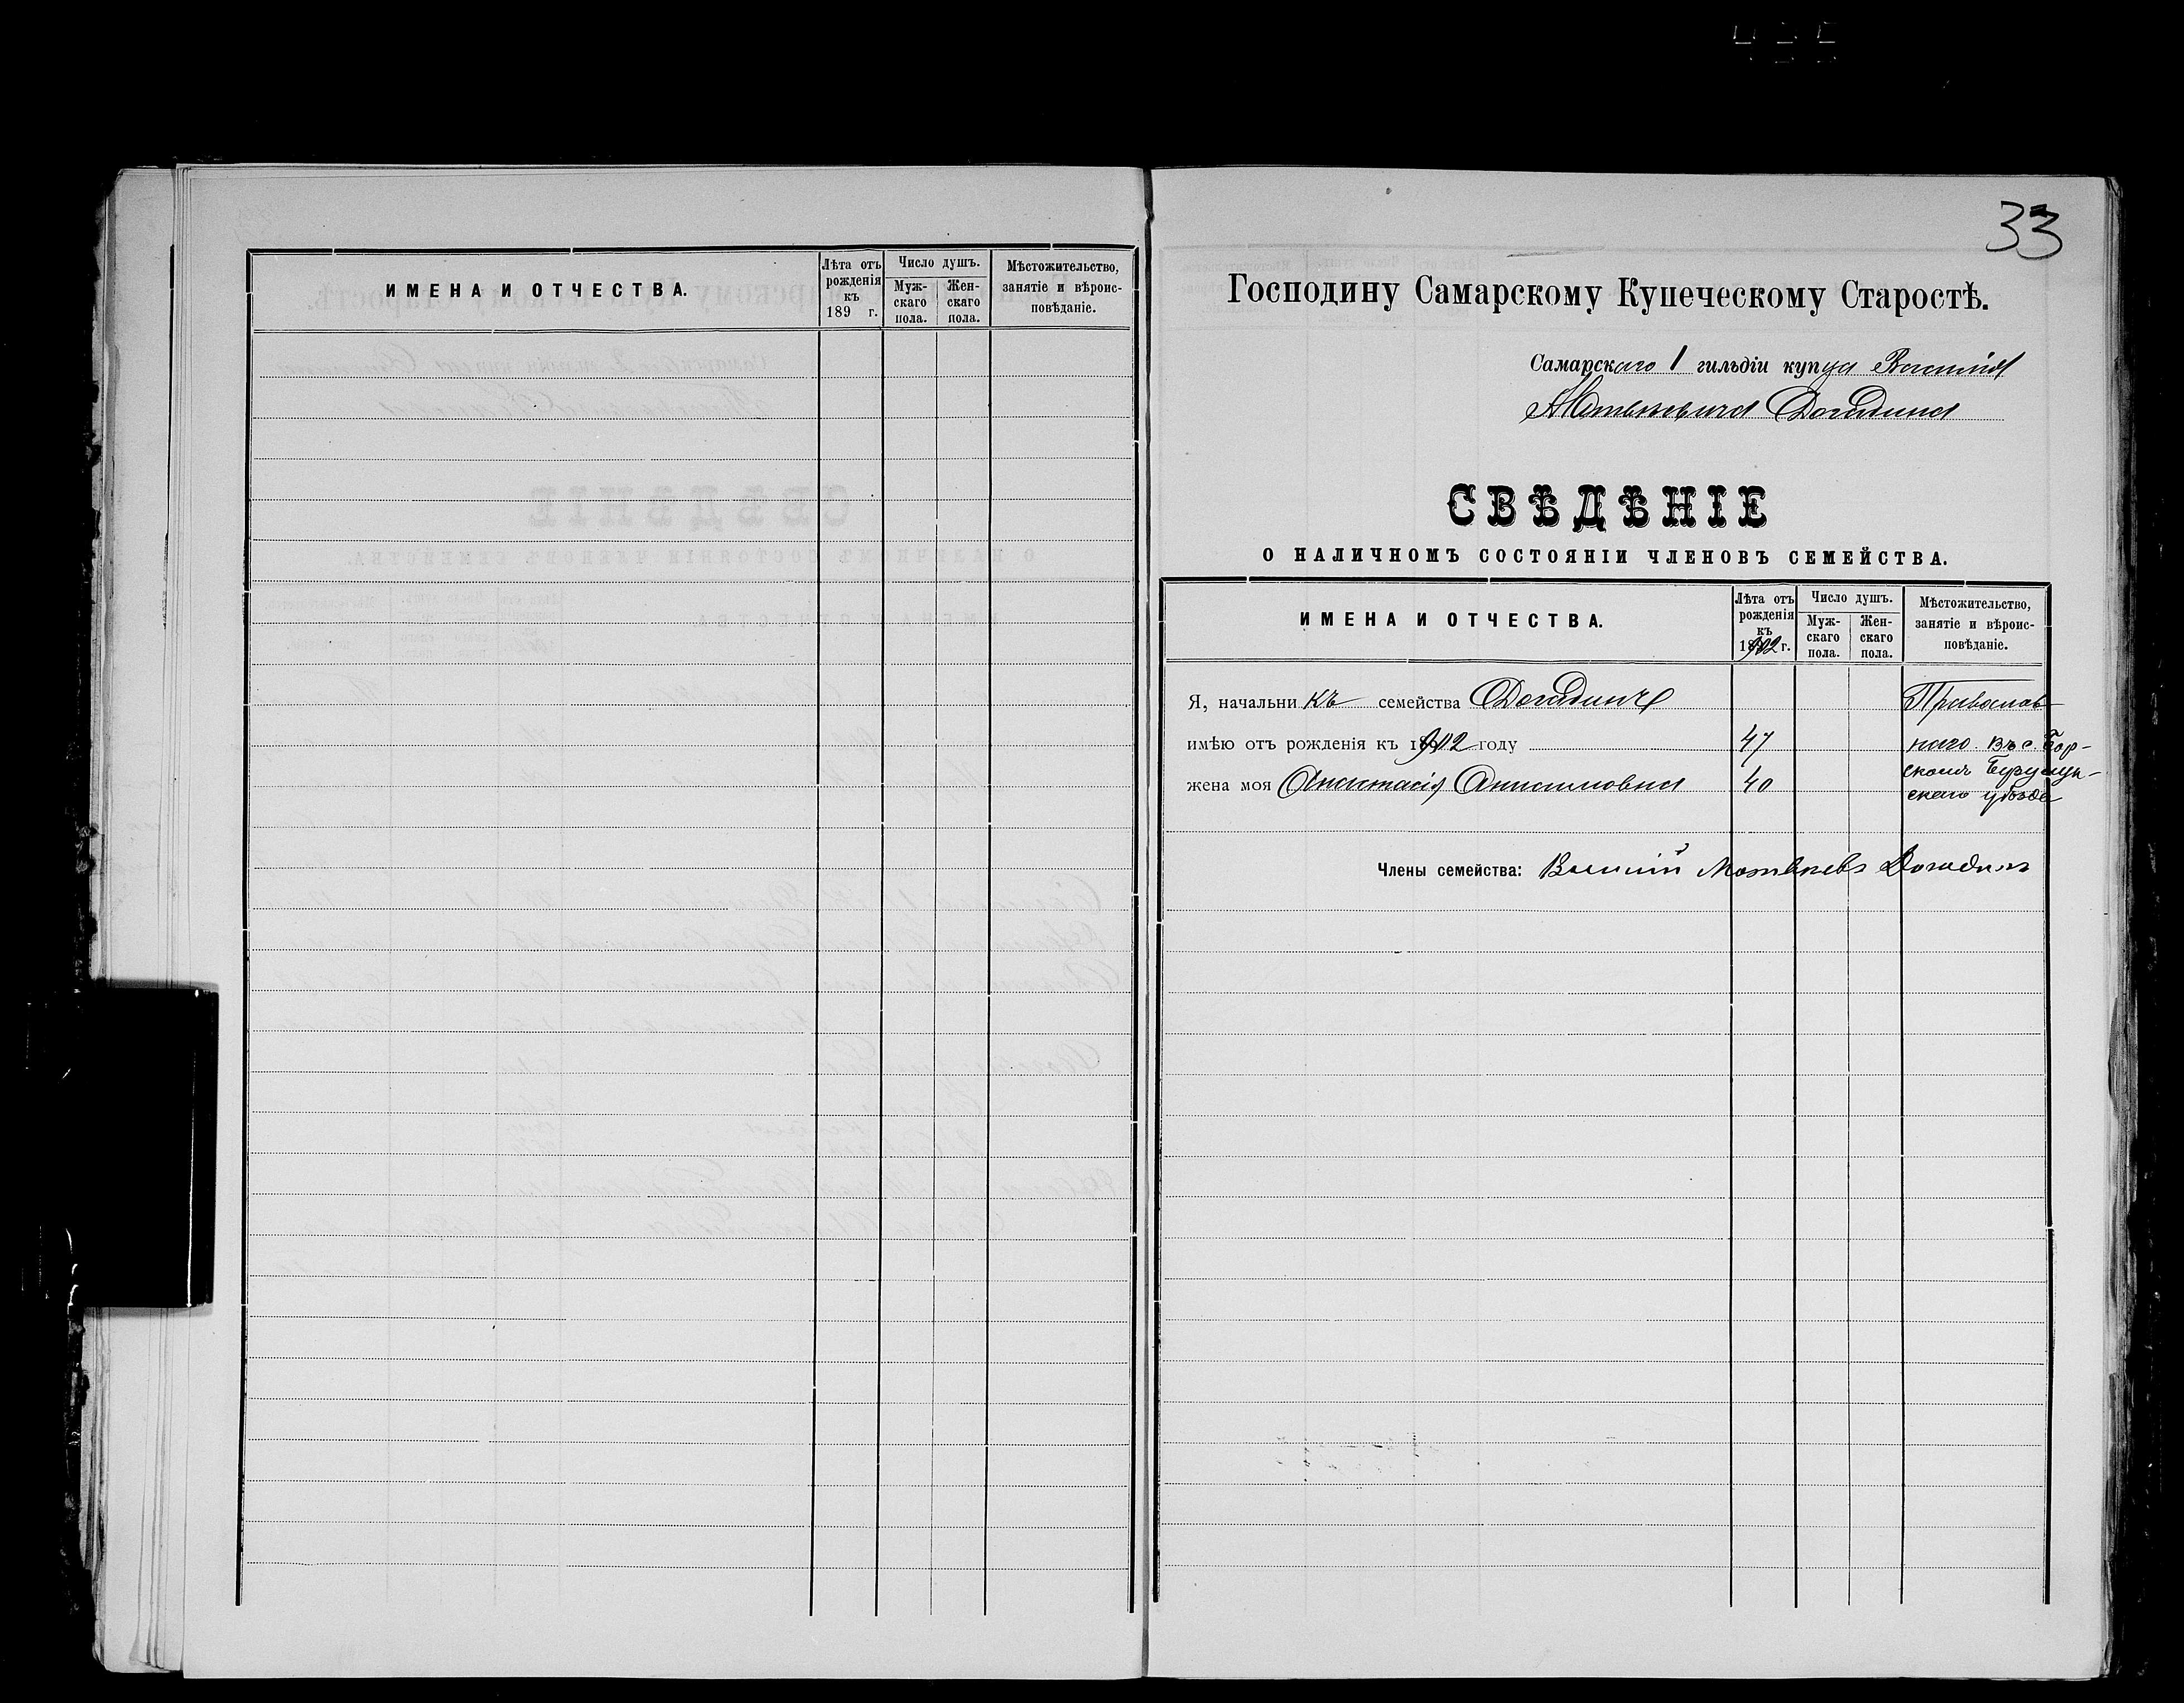 ИМЕНА И ОТЧЕСТВА.
Лѣта отъ рожденія къ 189 г.
Число душъ.
Мужскаго пола.
Женскаго пола.
Мѣстожительство, занятіе и вѣроисповѣданіе.
33
Господину Самарскому Купеческому Старостѣ.
Самарскаго 1 гильдіи купца Василія
Матвѣевича Догадина
СВѢДѢНІЕ
О НАЛИЧНОМЪ СОСТОЯНІИ ЧЛЕНОВЪ СЕМЕЙСТВА.
ИМЕНА И ОТЧЕСТВА.
Лѣта отъ
рожденія
къ
1902 г.
Число душъ.
Муж-
скаго
пола.
Жен-
скаго
пола.
Мѣстожительство,
занятіе и вѣроис-
повѣданіе.
Я, начальникъ семейства Догадинъ Православ-
имѣю отъ рожденія къ 1902 году 47 наго. въ с. Бор-
скомъ Бузулук-
жена моя Анастасія Анисимовна 40 скаго уѣзда
Члены семейства: Василій Матвѣевъ Догадинъ